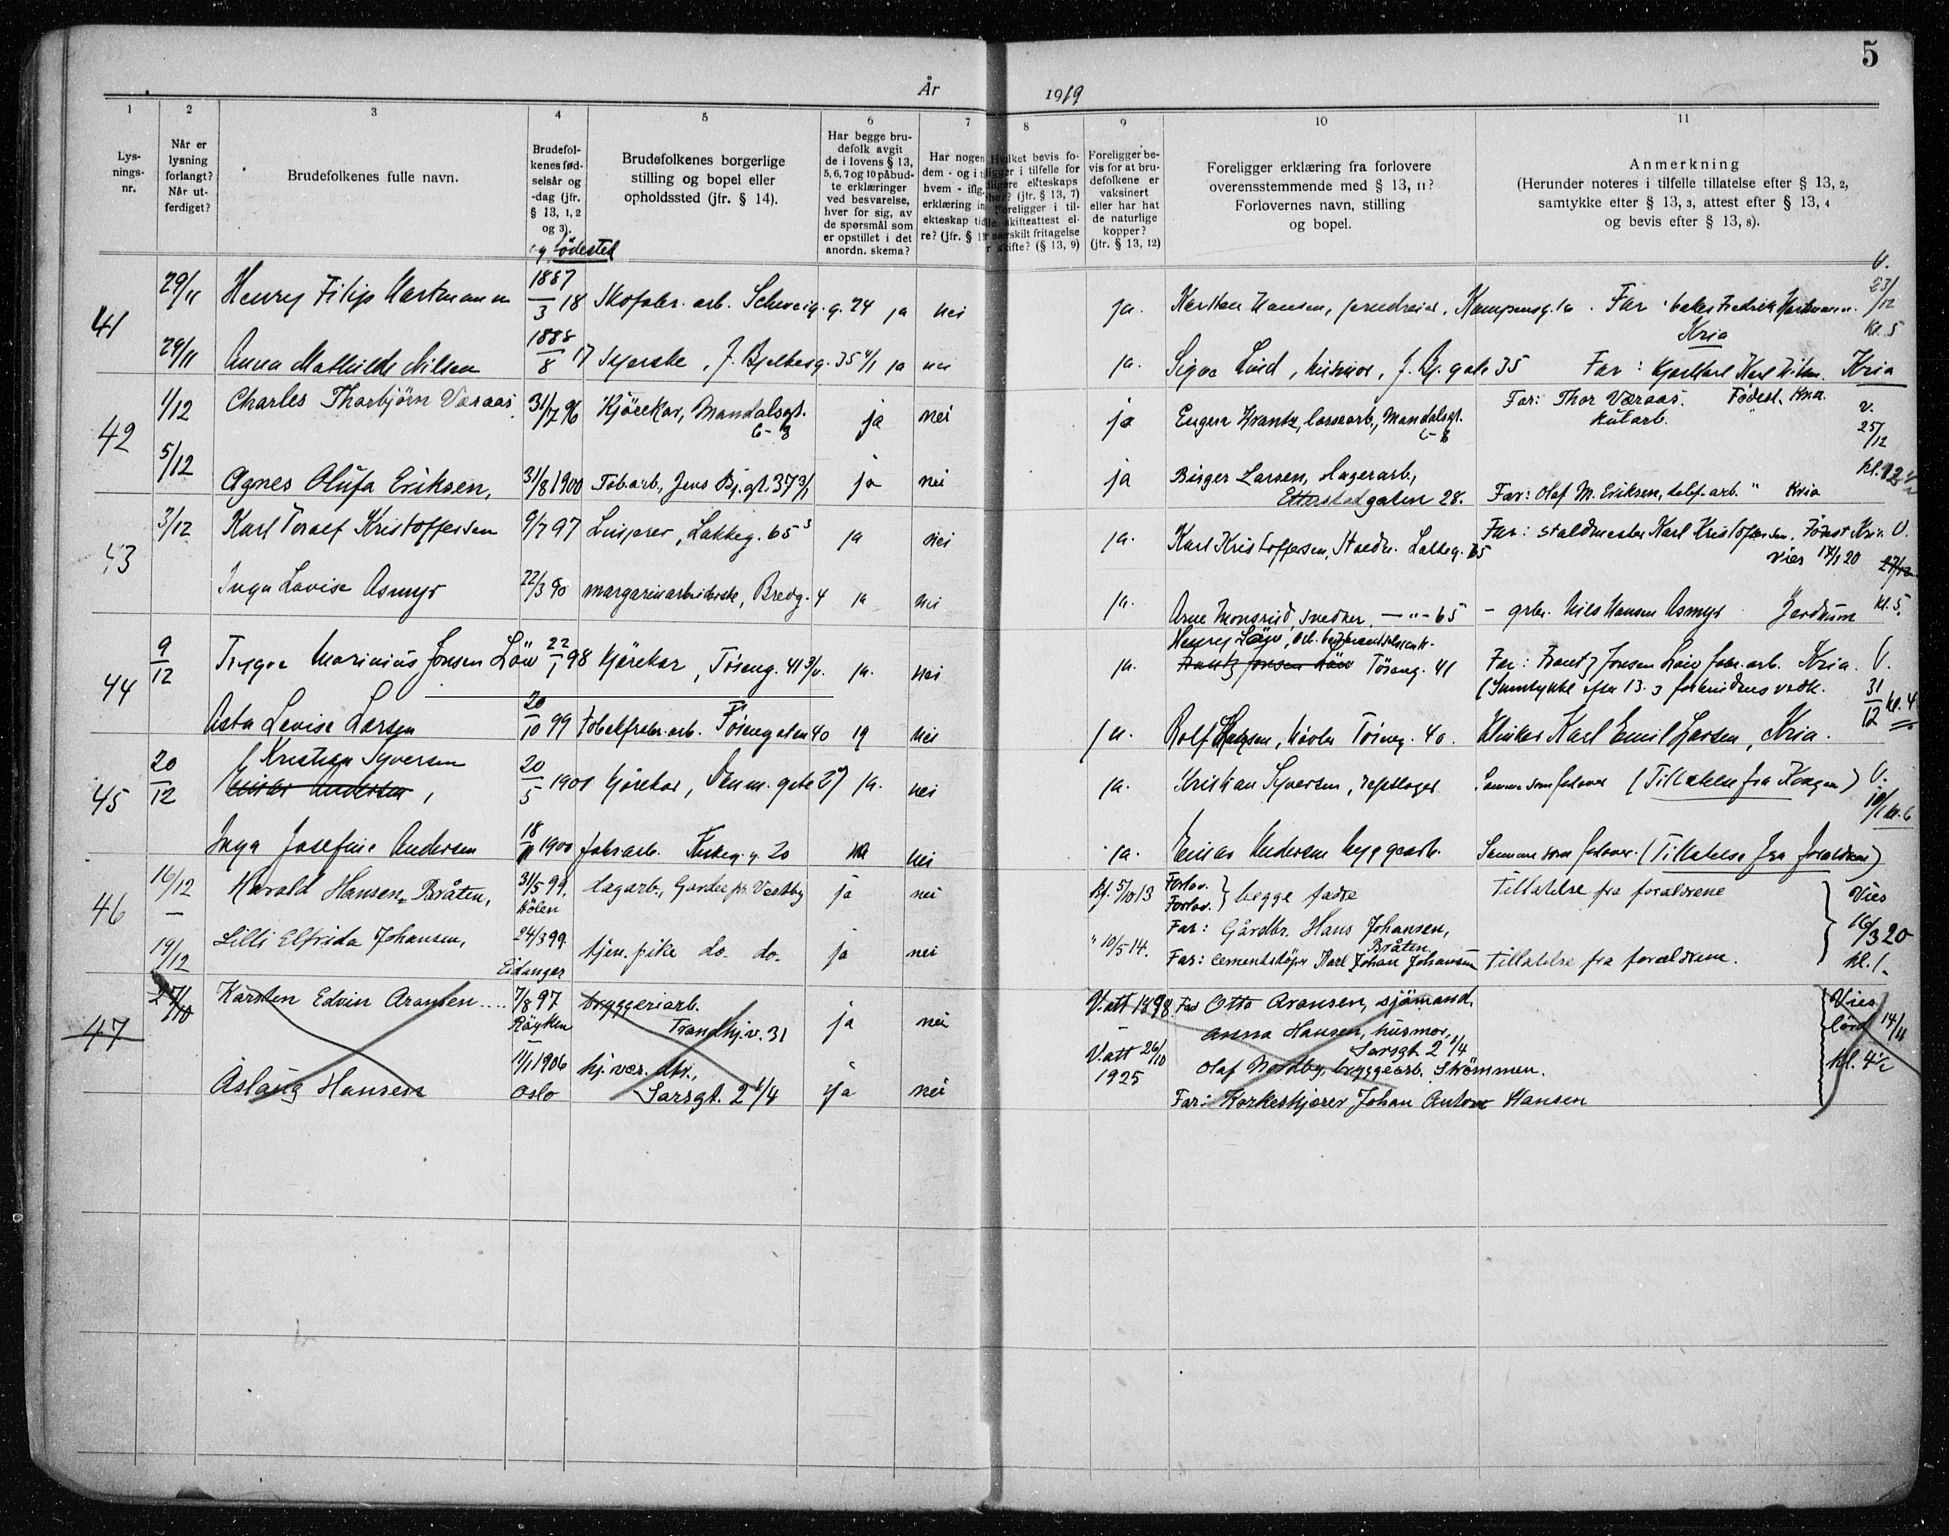 5
År 1919
1 2 3 4 5 6 7 8 9 10 11
Lys-
nings-
nr.
Når er
lysning
forlangt?
Når ut-
ferdiget?
Brudefolkenes fulle navn.
Brudefol-
kenes fød-
selsår og
-dag (jfr.
§ 13, 1, 2
og 3).
og fødested
Brudefolkenes borgerlige
stilling og bopel eller
opholdssted (jfr. § 14).
Har begge bru-
defolk avgit
de i lovens § 13,
5, 6, 7 og 10 påbud-
te erklæringer
ved besvarelse,
hver for sig, av
de spørsmål som
er opstillet i det
anordn. skema?
Har nogen
dem - og i
hvem - iflg.
erklæring in
ekteskap tid
re? (jfr. § 13
Hvilket bevis fo-
ligger i tilfelle for
ligere ekteskaps
(jfr. § 13, 7)
Foreligger i til-
skifteattest el-
særskilt fritagelse
skifte? (§ 13, 9)
Foreligger be-
vis for at bru-
defolkene er
vaksinert
eller har hat
de naturlige
kopper?
(jfr. § 13, 12)
Foreligger erklæring fra forlovere
overensstemmende med § 13, 11?
Forlovernes navn, stilling
og bopel.
Anmerkning
(Herunder noteres i tilfelle tillatelse efter § 13, 2,
samtykke efter § 13, 3, attest efter § 13, 4
og bevis efter § 13, 8).
41 29/11 Henry Filip Hartmann 1887 18/3 Skofabr. arb. Schweig. g. 74 ja nei ja. Karsten Hansen, jerndreier, Kampensg. 16. Far: Fredrik Hartmann. Kria V. 23/12 kl. 5
29/11 Anna Mathilde Nilsen 1888 17/8 Syerske, J. Bjelkesg. 35 4/1 ja nei ja. Signe Lind, husmor, J. Bj. gate 35 Far: Karl Kria
42 1/12 Charles Thorbjörn Væraas 31/7 96 Kjørekar, Mandalsgt. 6-8 ja nei ja Eugen Krantz, lasarb., Mandalsgt. 6-8 Far: Thor Væraas. Fødest. Kria kularb. V. 25/12 kl. 12 1/2
5/12 Agnes Olüfa Eriksen, 31/8 1900 Tob.arb., Jens Bj. gt. 37 3/1 ja nei ja Birger Larsen, lagerarb., Etterstadgaten 28. Far: Olaf M. Eriksen, telef. arb. " Kria
43 3/12 Karl Toralf Kristoffersen 9/7 97 Linjerer, Lakkeg. 65 3 ja nei ja. Karl Kristoffersen, Staldm. Lakkeg. 65 Far: Staldmester Karl Kristoffersen, Fødest Kria. V. Vies 17/1 20 27/12
Inga Lovise Asmyr 22/3 90 margarinarbeiderske, Bredg. 4 ja nei ja. Arne Monsrud, snedker, — " — 65 - grbr. Nils Hansen Asmyr Jordkum kl. 5
44 9/12 Trygve Marinius Jonsen Löw 22/1 98 Kjørekar, Tøieng. 41 3/0. ja. nei ja. Henry Löw, arb. Frantz Jonsen Löw Tøieng. 41 Far: Frantz Jonsen Löw fabr. arb. Kria. V.
(Samtykke efter 13.3 forhindens vedk. 31/12 kl. 4
Asta Levise Larsen 20/10 99 tobakfabr. arb. Tøiengaten 40 ja nei ja. Rolf Hansen, høvler Tøieng. 40. Klinker Karl Emil Larsen, Kria.
45 20/12 Kristian Syversen
Einar Andersen, 20/5 1901 Kjørekar, Danm. gate 27 ja. nei ja. Kristian Syversen, repslager Samme som forlover (Tillatelse fra Kongen) V. 10/1 kl. 6
Inga Josefine Andersen 18/11 1900 fabr.arb. 20 ja nei ja. Einar Andersen byggearb. Samme som forlover. (Tillatelse fra foreldrene)
46 16/12 Harald Hansen Bråten, 31/5 99. Hölen dagarb., Garder pr. Vestby ja nei Bf. 5/10 13 Forlov. Forlov. } begge fædre Tillatelse fra foreldrene Vies 16/3 20 kl. 1.
Far: Gårdbr. Hans Johansen, Bråten
19/12 Lilli Elfrida Johansen, 24/3 99. Eidanger tjen. pike do. do. ja nei " 10/5 14. Far: cementstöper Karl Johan Johansen Tillatelse fra forældrene.
47 27/10 Karsten Edvin Aronsen .... 7/8 97 Röyken bryggeriarb. Trondhj.v. 31 ja nei V. att 1898 Far Otto Aronsen, sjömand. Vies lörd 14/11 kl. 4 1/2
Anna Hansen, husmor, Sarsgt. 2 1/4
Åslaug Hansen 11/1 1906 Oslo hj.vær. dtr., Sarsgt. 2 1/4 ja nei V. att 26/10 1925 Olaf Nordby, bryggearb. Strömmen.
Far: Korkeskjærer Johan Anton Hansen